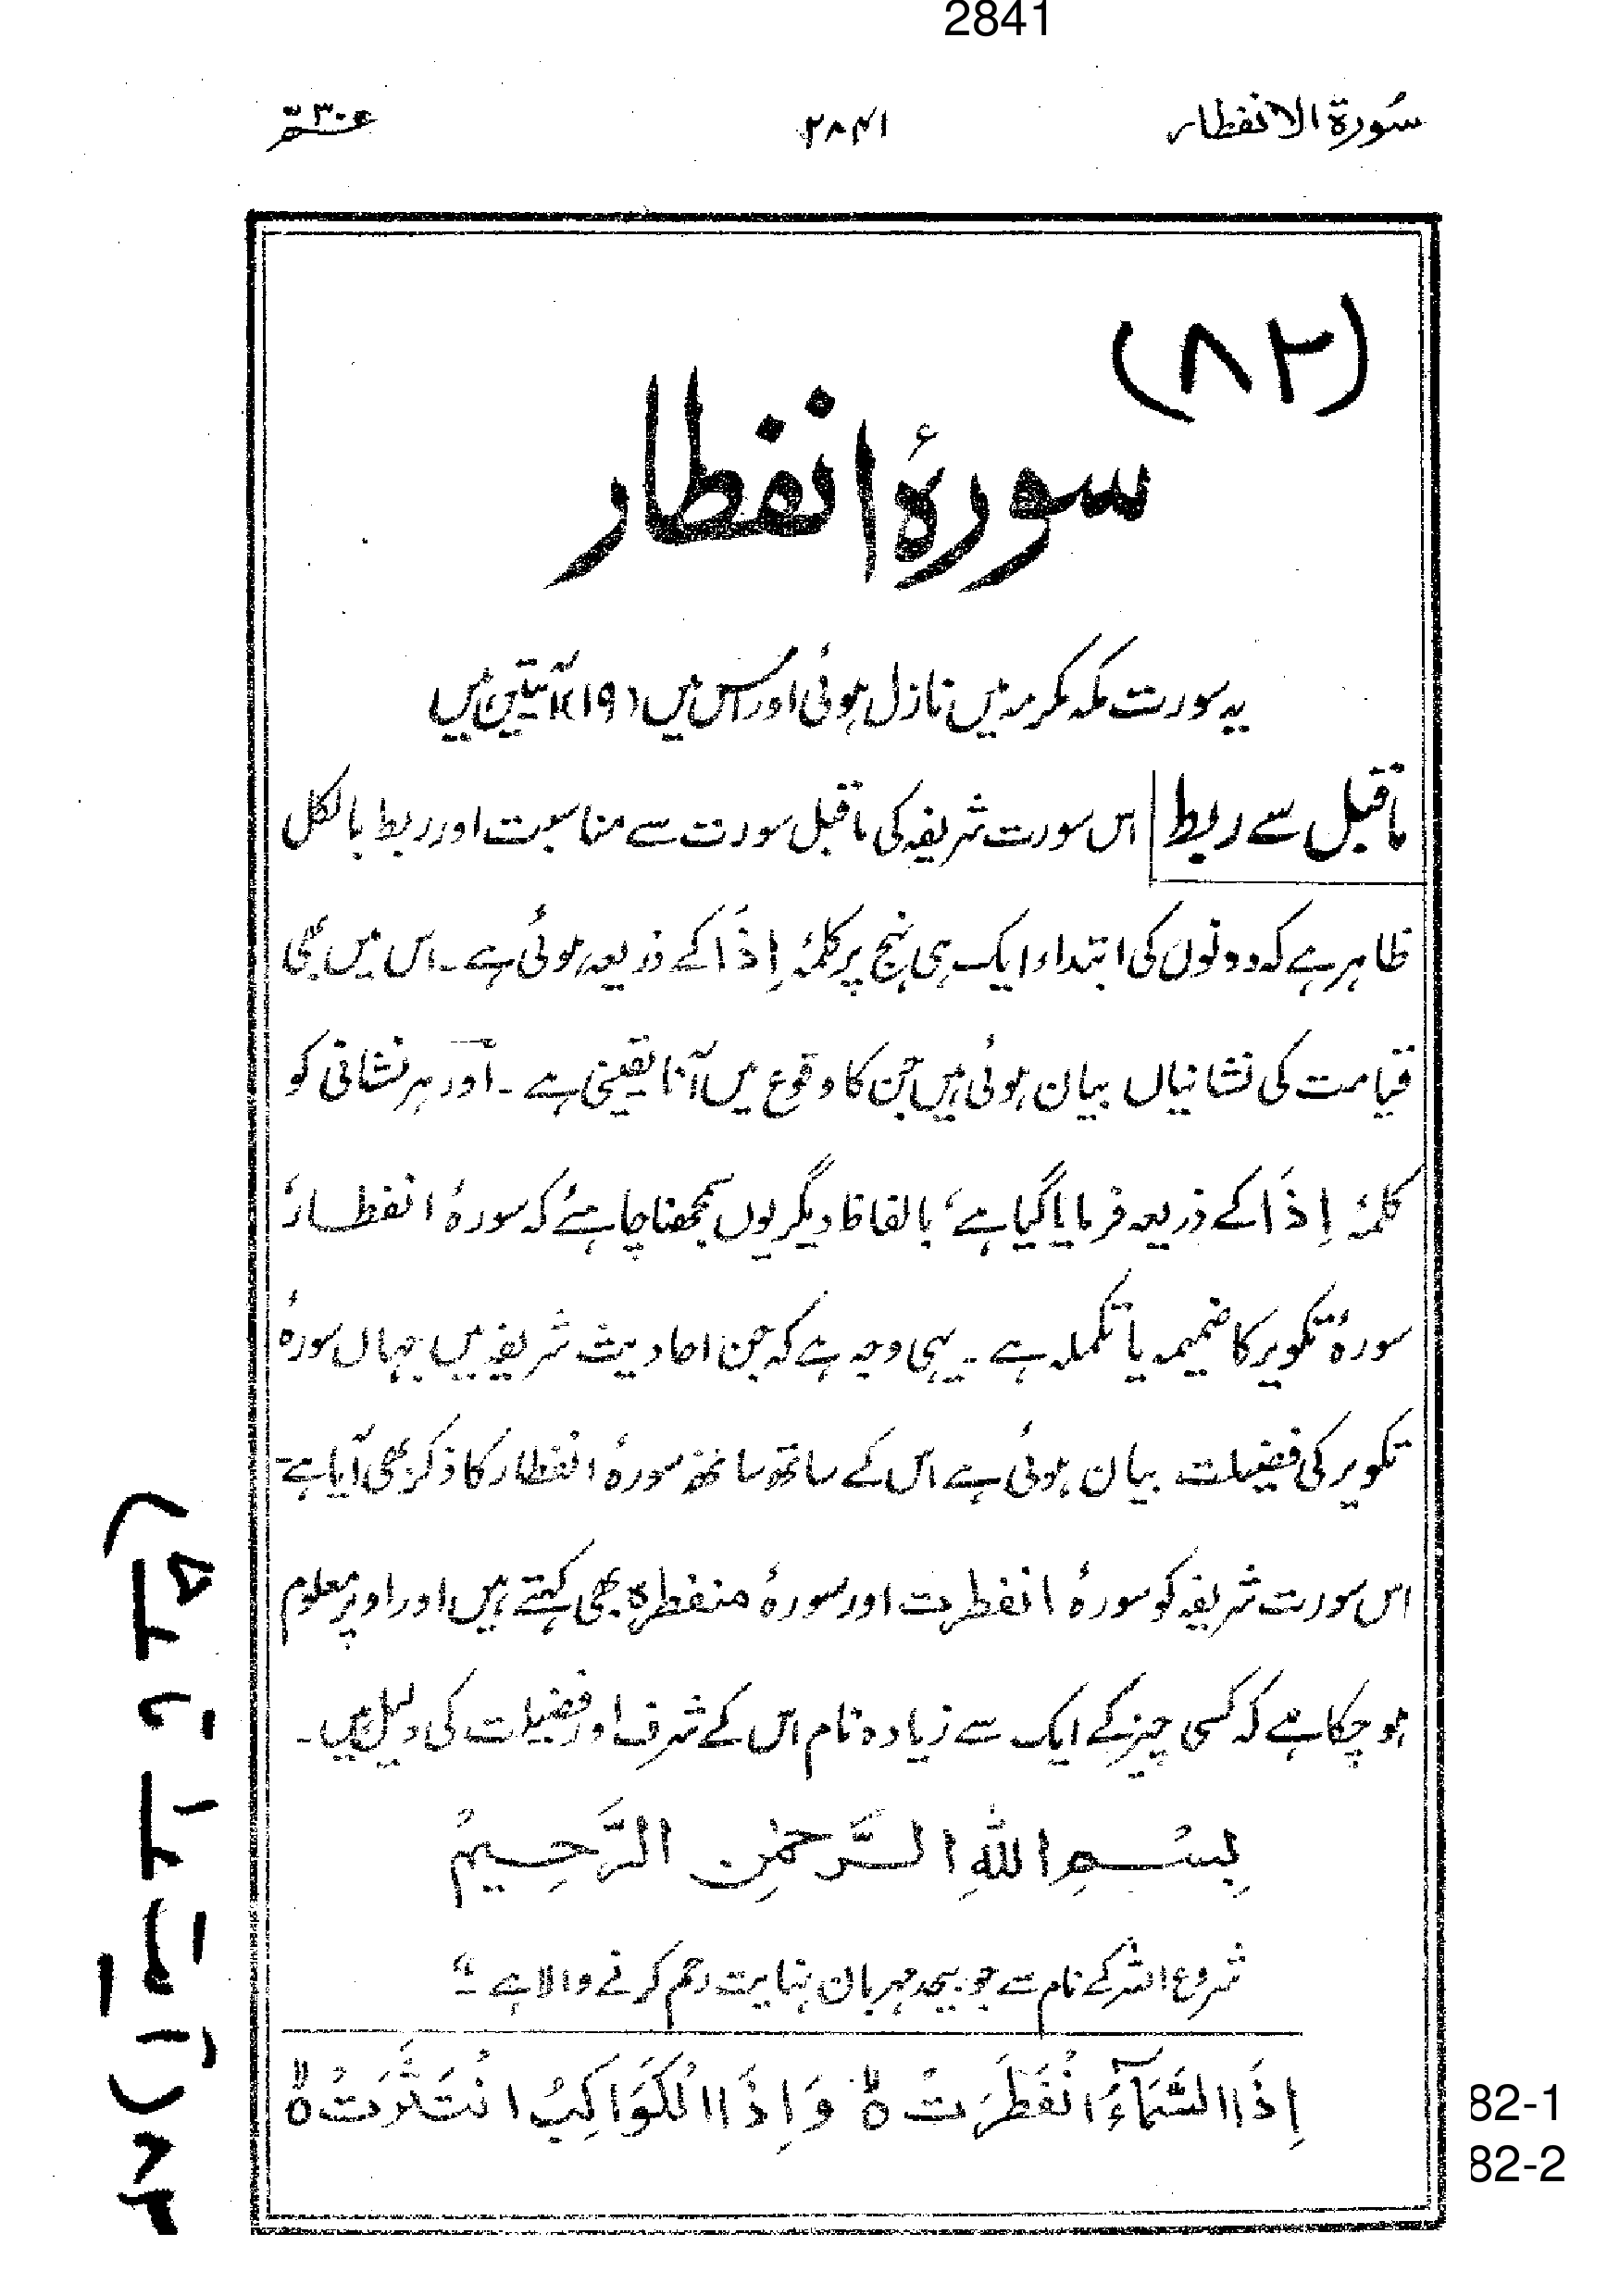 2841
سُورة الانفطار ۲۸۴۱ عمّ ۳۰
(۸۲)
سورۂ انفطار
یہ سورت مکہ مکرمہ میں نازل ہوئی اور اس میں (۱۹) آیتیں ہیں
ماقبل سے ربط اس سورت شریفہ کی ماقبل سورت سے مناسبت اور ربط بالکل
ظاہر ہے کہ دونوں کی ابتداء ایک ہی نہج پر کلمۂ اِذَا کے ذریعہ ہوئی ہے ۔ اس میں بھی
قیامت کی نشانیاں بیان ہوئی ہیں جن کا وقوع میں آنا یقینی ہے ۔ اور ہر نشانی کو
کلمۂ اِذَا کے ذریعہ فرمایا گیا ہے، بالفاظ دیگر یوں سمجھنا چاہئے کہ سورۂ انفطار
سورۂ تکویر کا ضمیمہ یا تکملہ ہے ۔ یہی وجہ ہے کہ جن احادیث شریفہ میں جہاں سورۂ
تکویر کی فضیلت بیان ہوئی ہے اس کے ساتھ ساتھ سورۂ انفطار کا ذکر بھی آیا ہے ۔
اس سورت شریفہ کو سورۂ انفطرت اور سورۂ منفطرہ بھی کہتے ہیں اور اوپر معلوم
ہو چکا ہے کہ کسی چیز کے ایک سے زیادہ نام اس کے شرف اور فضیلت کی دلیل ہیں ۔
بِسْمِ اللّٰهِ الرَّحْمٰنِ الرَّحِيْمِ
شروع اللہ کے نام سے جو بیحد مہربان نہایت رحم کرنے والا ہے ۔
اِذَا السَّمَآءُ انْفَطَرَتْ ۙ وَاِذَا الْكَوَاكِبُ انْتَثَرَتْ ۙ
82-1
82-2